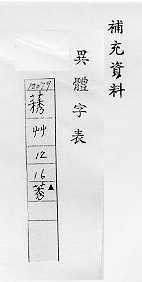 補充資料
異體字表
12079
艸
12
16